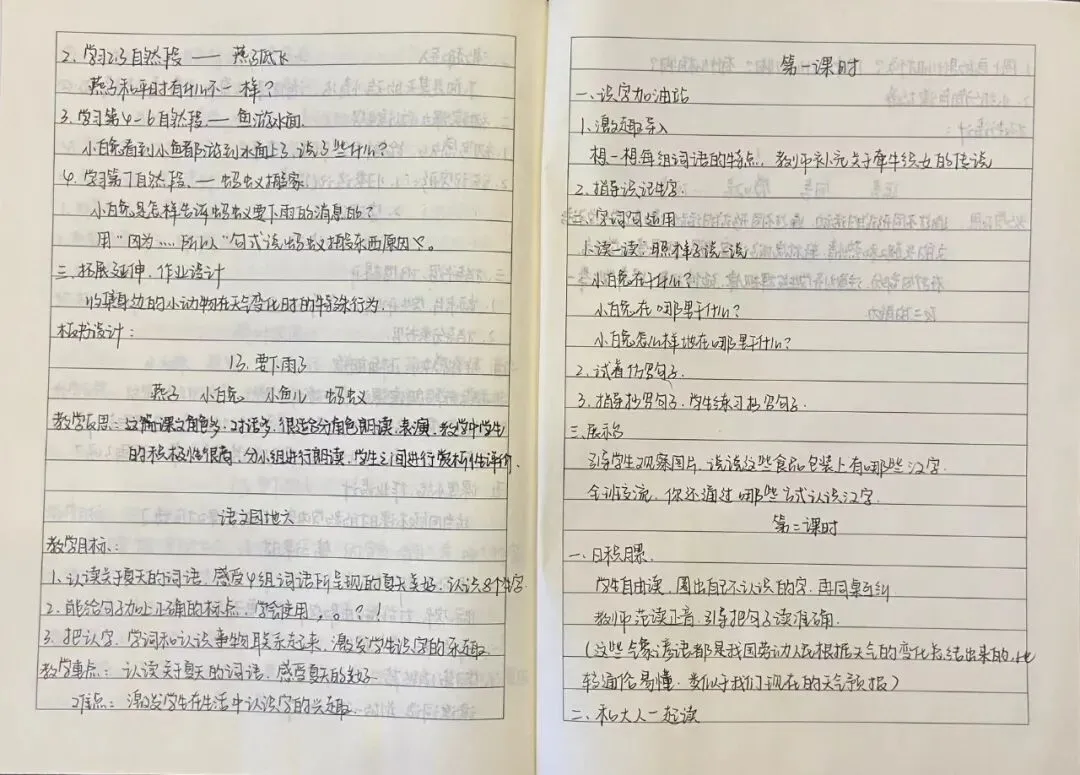 2. 学习2.3自然段 —— 燕子低飞
燕子和平时有什么不一样？
3. 学习第4-6自然段. —— 鱼游水面.
小白兔看到小鱼都游到水面上了，说了些什么？
4. 学习第7自然段. —— 蚂蚁搬家.
小白兔是怎样告诉蚂蚁要下雨的消息的？
用“因为……所以”句式说蚂蚁搬东西原因
三. 拓展延伸. 作业设计
收集身边的小动物在天气变化时的特殊行为.
板书设计：
13. 要下雨了
燕子 小白兔 小鱼儿 蚂蚁
教学反思：这篇课文角色多. 对话多. 很适合分角色朗读. 表演. 教学中学生
的积极性很高. 分小组进行朗读. 学生之间进行赏析性评价.
语文园地六
教学目标：
1. 认读关于夏天的词语. 感受4组词语所呈现的夏天美好. 认识8个生字
2. 能给句子加上正确的标点. 学会使用，。？！
3. 把认字. 学词和认识事物联系起来. 激发学生识字的乐趣
教学重点：认读关于夏天的词语. 感受夏天的美好.
难点：激发学生在生活中认识字的兴趣.
第一课时
一. 识字加油站
1. 激趣导入
想一想每组词语的特点. 教师补充关于牵牛织女的传说
2. 指导识记生字
二. 字词句运用
1. 读一读. 照样子说一说
小白兔在干什么？
小白兔在哪里干什么？
小白兔怎么样地在哪里干什么？
2. 试着仿写句子.
3. 指导抄写句子. 学生练习抄写句子.
三. 展示台
引导学生观察图片. 说说这些食品包装上有哪些汉字.
全班交流. 你还通过哪些方式认识汉字.
第二课时
一. 日积月累.
学生自由读. 圈出自己不认识的字. 再同桌互纠
教师范读正音. 引导把句子读准确.
（这些气象谚语都是我国劳动人民根据天气的变化总结出来的. 比
较通俗易懂. 类似于我们现在的天气预报）
二. 和大人一起读